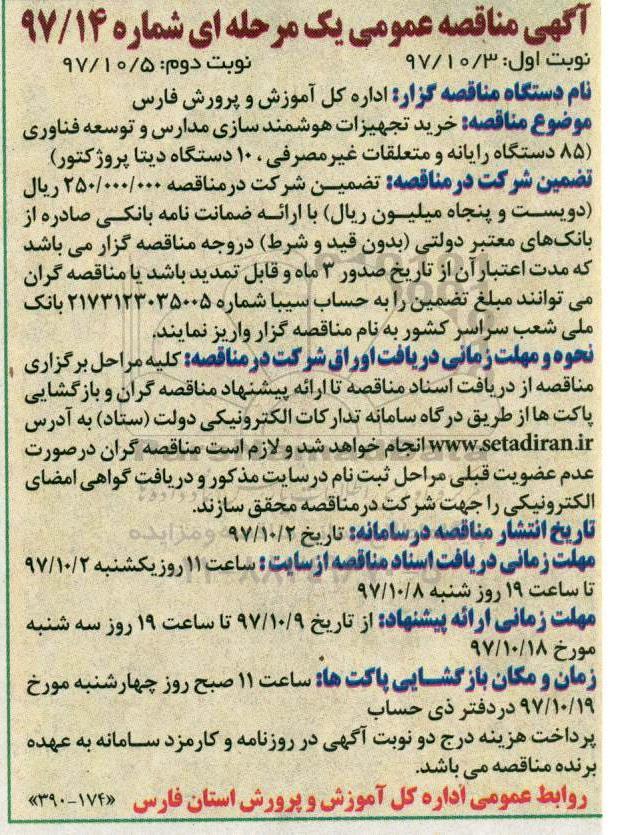 آگهی مناقصه عمومی یک مرحله ای شماره ۹۷/۱۴
نوبت اول: ۹۷/۱۰/۳ نوبت دوم: ۹۷/۱۰/۵
نام دستگاه مناقصه گزار: اداره کل آموزش و پرورش فارس
موضوع مناقصه: خرید تجهیزات هوشمند سازی مدارس و توسعه فناوری
(۸۵ دستگاه رایانه و متعلقات غیرمصرفی، ۱۰ دستگاه دیتا پروژکتور)
تضمین شرکت در مناقصه: تضمین شرکت در مناقصه ۲۵۰/۰۰۰/۰۰۰ ریال
(دویست و پنجاه میلیون ریال) با ارائه ضمانت نامه بانکی صادره از
بانک‌های معتبر دولتی (بدون قید و شرط) در وجه مناقصه گزار می باشد
که مدت اعتبار آن از تاریخ صدور ۳ ماه و قابل تمدید باشد یا مناقصه گران
می توانند مبلغ تضمین را به حساب سیبا شماره ۲۱۷۳۱۲۳۰۳۵۰۰۵ بانک
ملی شعب سراسر کشور به نام مناقصه گزار واریز نمایند.
نحوه و مهلت زمانی دریافت اوراق شرکت در مناقصه: کلیه مراحل برگزاری
مناقصه از دریافت اسناد مناقصه تا ارائه پیشنهاد مناقصه گران و بازگشایی
پاکت ها از طریق درگاه سامانه تدارکات الکترونیکی دولت (ستاد) به آدرس
www.setadiran.ir انجام خواهد شد و لازم است مناقصه گران درصورت
عدم عضویت قبلی مراحل ثبت نام در سایت مذکور و دریافت گواهی امضای
الکترونیکی را جهت شرکت در مناقصه محقق سازند.
تاریخ انتشار مناقصه در سامانه: تاریخ ۹۷/۱۰/۲
مهلت زمانی دریافت اسناد مناقصه از سایت: ساعت ۱۱ روز یکشنبه ۹۷/۱۰/۲
تا ساعت ۱۹ روز شنبه ۹۷/۱۰/۸
مهلت زمانی ارائه پیشنهاد: از تاریخ ۹۷/۱۰/۹ تا ساعت ۱۹ روز سه شنبه
مورخ ۹۷/۱۰/۱۸
زمان و مکان بازگشایی پاکت ها: ساعت ۱۱ صبح روز چهارشنبه مورخ
۹۷/۱۰/۱۹ در دفتر ذی حساب
پرداخت هزینه درج دو نوبت آگهی در روزنامه و کارمزد سامانه به عهده
برنده مناقصه می باشد.
روابط عمومی اداره کل آموزش و پرورش استان فارس «۳۹۰-۱۷۴»